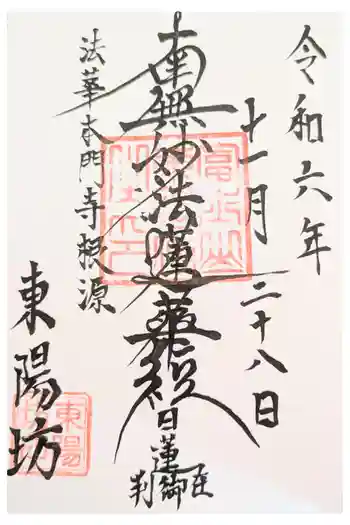 令和六年
十一月二十八日
南無妙法蓮華経
日蓮
在御判
法華本門寺根源
東陽坊
東陽